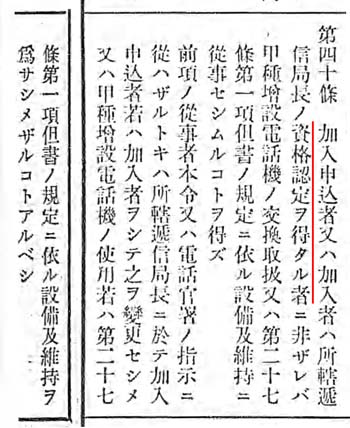 第四十條　加入申込者又ハ加入者ハ所轄遞
信局長ノ資格認定ヲ得タル者ニ非ザレバ
甲種增設電話機ノ交換取扱又ハ第二十七
條第一項但書ノ規定ニ依ル設備及維持ニ
從事セシムルコトヲ得ズ
前項ノ從事者本令又ハ電話官署ノ指示ニ
從ハザルトキハ所轄遞信局長ニ於テ加入
申込者若ハ加入者ヲシテ之ヲ變更セシメ
又ハ甲種增設電話機ノ使用若ハ第二十七
條第一項但書ノ規定ニ依ル設備及維持ヲ
爲サシメザルコトアルベシ